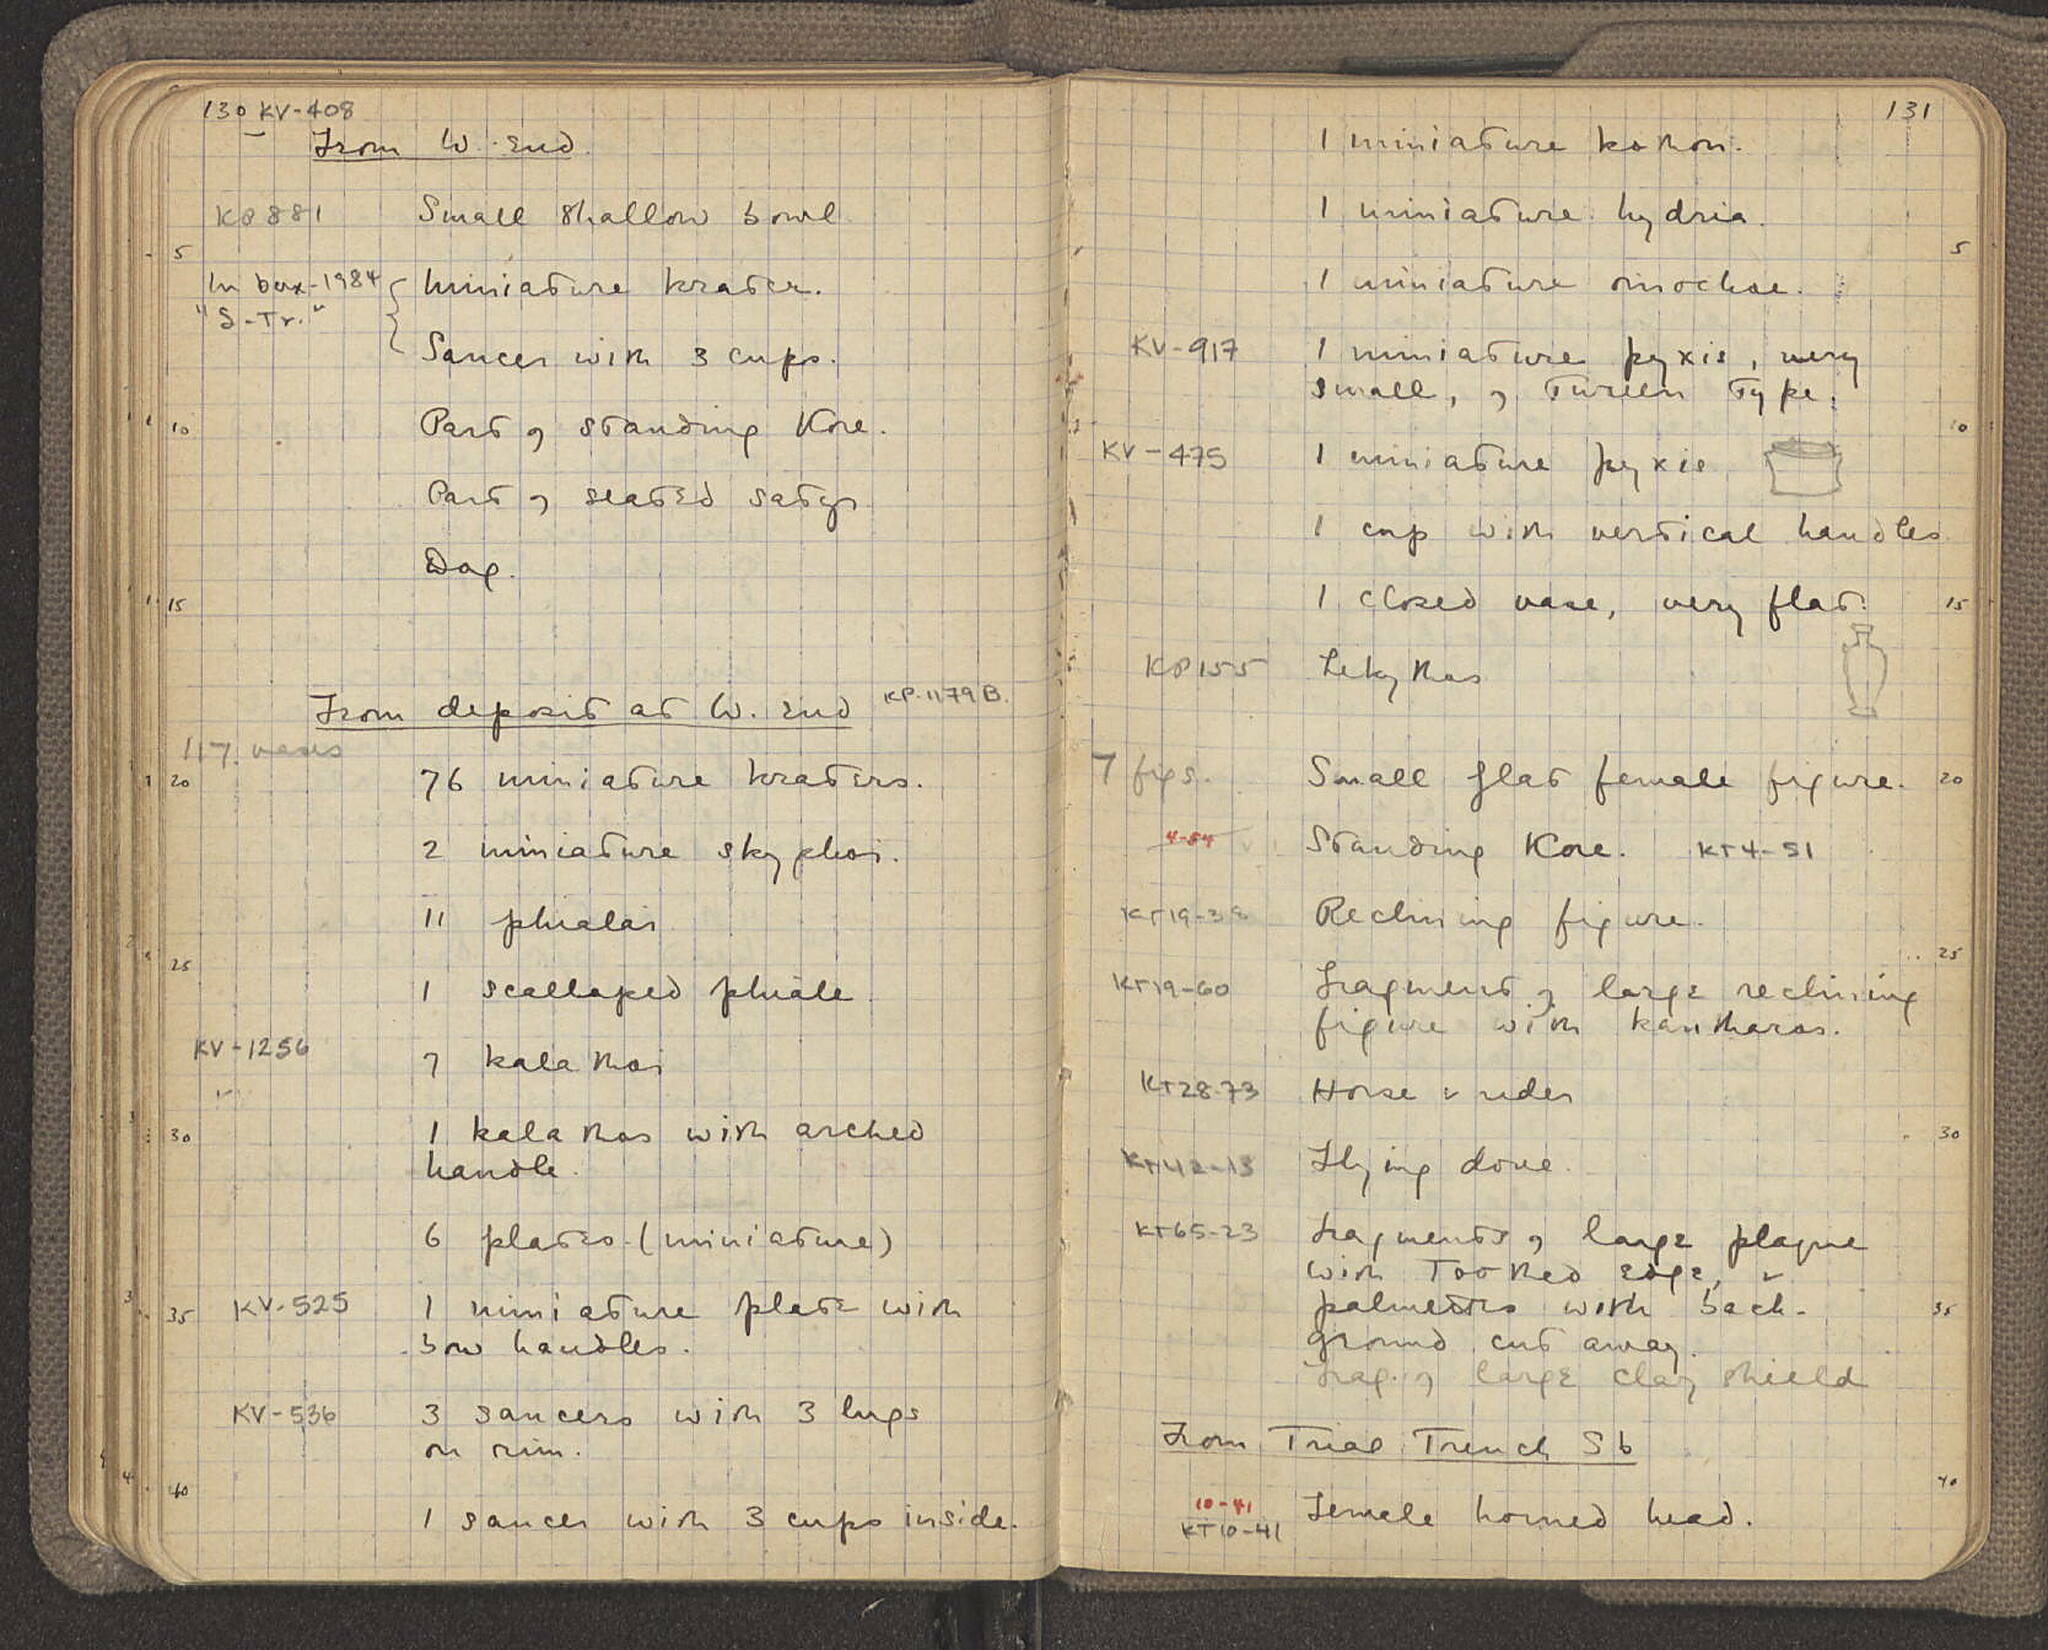 130 KV-408
From W. End.
KP 881 Small shallow bowl
5
In box-1984 Miniature krater.
"S-Tr."
Saucer with 3 cups.
10 Part of standing Kore.
Part of seated satyr
Dog.
15
From deposit at W. End KP-1179B.
117 vases
20 76 miniature kraters.
2 miniature skyphoi.
11 phialai
25
1 scalloped phiale.
KV-1256
7 kalathoi
30 1 kalathos with arched
handle.
6 plates (miniature)
35 KV-525 1 miniature plate with
bow handles.
KV-536 3 saucers with 3 lugs
on rim.
40
1 saucer with 3 cups inside.
131
1 miniature kothon.
1 miniature hydria.
5
1 miniature oinochoe.
KV-917 1 miniature pyxis, very
small, of tureen type.
10
KV-475 1 miniature pyxis
1 cup with vertical handles
1 closed vase, very flat. 15
KP 155 Lekythos
7 figs. Small flat female figure. 20
4-54 Standing Kore. KT4-51
KT19-38 Reclining figure.
25
KT19-60 Fragment of large reclining
figure with kantharos.
KT28-73 Horse & rider
30
KT42-13 Flying dove.
KT65-23 Fragments of large plaque
with toothed edge, &
palmettes with back- 35
ground cut away.
Frag. of large clay shield
From Trial Trench Sb
40
10-41 Female horned head.
KT10-41